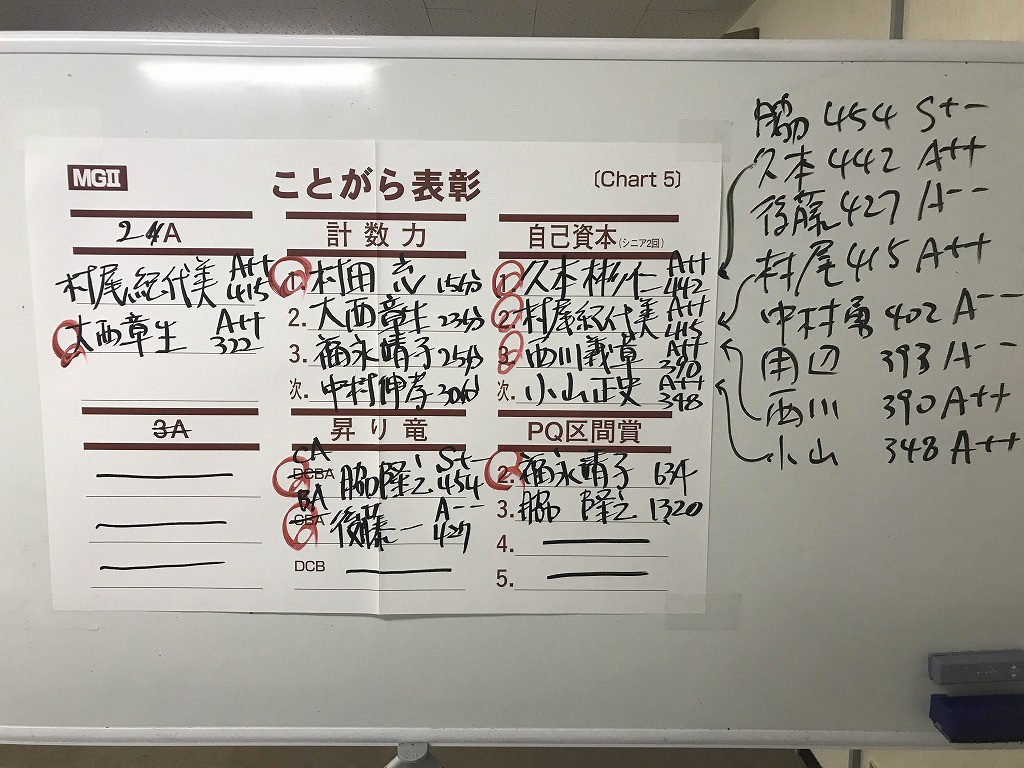 MGⅡ
ことがら表彰
〔Chart 5〕
24A
村尾紀代美 A++ 415
大西章生 A++ 322
3A
計数力
1. 村田 15分
2. 大西章生 23分
3. 福永靖子 25分
次. 中村伸孝 30分
昇り竜
CA
DCBA 脇隆之 S+- 454
BA
CBA 後藤一 A-- 427
DCB
自己資本(シニア2回)
1. 久本彬仁 A++ 442
2. 村尾紀代美 A++ 415
3. 西川義章 A++ 390
次. 小山正史 A++ 348
PQ区間賞
2. 福永靖子 634
3. 脇隆之 1320
4.
5.
脇 454 S+-
久本 442 A++
後藤 427 A--
村尾 415 A++
中村勇 402 A--
田辺 393 A--
西川 390 A++
小山 348 A++